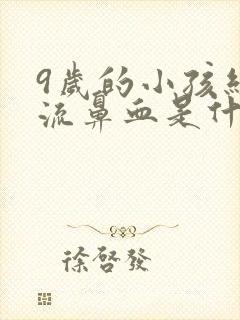 9歲的小孩經
流鼻血是什
徐啓發